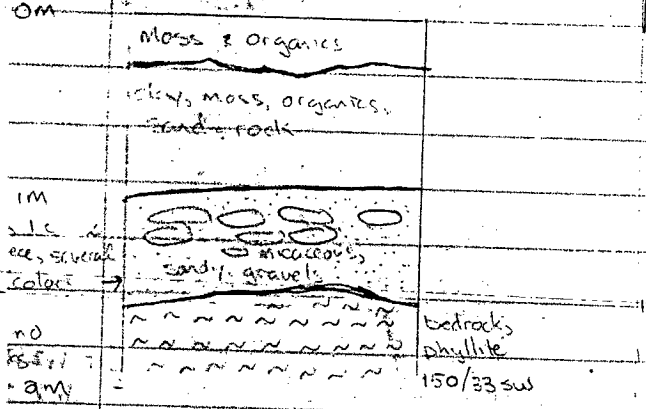 OM
Moss & Organics
clay, moss, organics,
sand & rock
1M
several
colors →
micaceous,
sandy gravels
bedrock,
phyllite
150/33 SW
no
2M